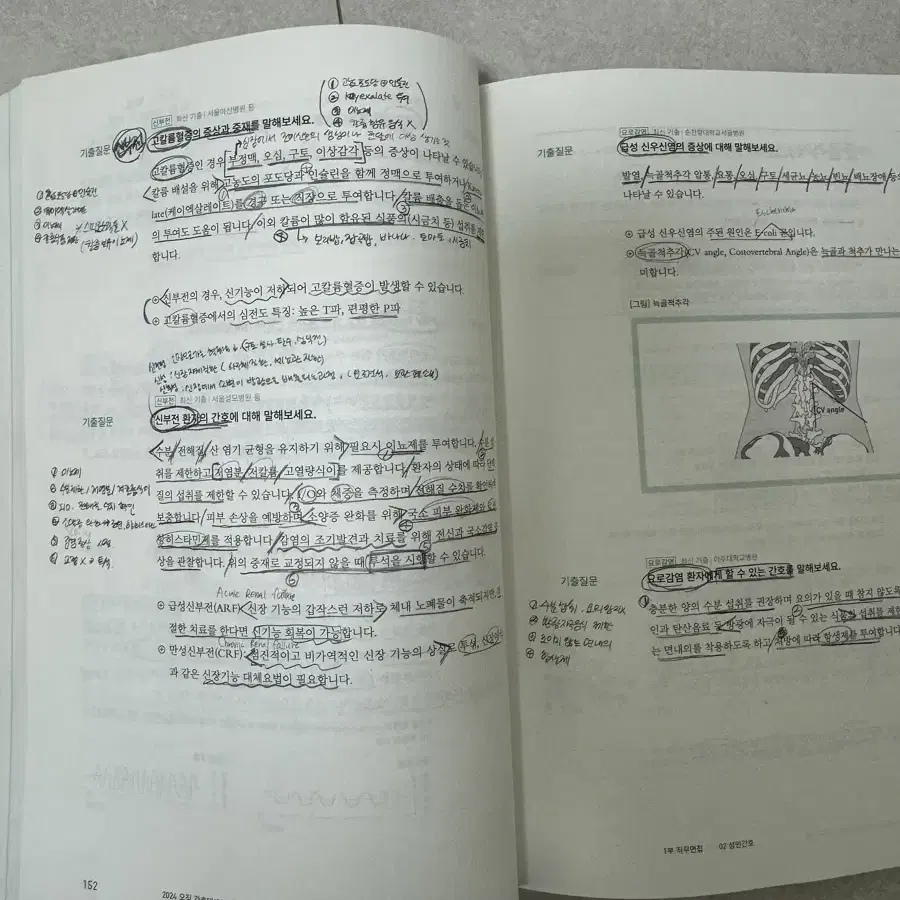 ① 고농도포도당 ⊕ 인슐린
② kayexalate 투여
③ 이뇨제
④ 칼륨 함유 음식 X
신부전 최신 기출 | 서울아산병원 등
기출질문
신부전
고칼륨혈증의 증상과 중재를 말해보세요.
고칼륨혈증인 경우 부정맥, 오심, 구토, 이상감각 등의 증상이 나타날 수 있습니다.
칼륨 배설을 위해 고농도의 포도당과 인슐린을 함께 정맥으로 투여하거나
late(케이엑살레이트)를 경구 또는 직장으로 투여합니다. 칼륨 배출을 돕는 이뇨제
의 투여도 도움이 됩니다. 이외 칼륨이 많이 함유된 식품의(시금치 등) 섭취를
합니다.
바나나, 토마토, 시금치
⊕ 신부전의 경우, 신기능이 저하되어 고칼륨혈증이 발생할 수 있습니다.
⊕ 고칼륨혈증에서의 심전도 특징: 높은 T파, 편평한 P파
신부전 최신 기출 | 서울성모병원 등
기출질문
신부전 환자의 간호에 대해 말해보세요.
수분/전해질/산 염기 균형을 유지하기 위해 필요시 이뇨제를 투여합니다. 수분
취를 제한하고 저염분, 저칼륨, 고열량식이를 제공합니다. 환자의 상태에 따라 단
질의 섭취를 제한할 수 있습니다. I/O와 체중을 측정하며 전해질 수치를 확인하여
보충합니다. 피부 손상을 예방하며 소양증 완화를 위해 국소 피부 완화제와
항히스타민제를 적용합니다. 감염의 조기발견과 치료를 위해 전신과 국소감염
상을 관찰합니다. 위의 중재로 교정되지 않을 때 투석을 시행할 수 있습니다.
① 이뇨제
Acute Renal failure
⊕ 급성신부전(ARF) 신장 기능의 갑작스런 저하로 체내 노폐물이 축적되지만,
절한 치료를 한다면 신기능 회복이 가능합니다.
Chronic Renal failure
⊕ 만성신부전(CRF) 점진적이고 비가역적인 신장 기능의 상실로 투석, 신장이식
과 같은 신장기능 대체요법이 필요합니다.
152
2024 오직 간호대
요로감염 최신 기출 | 순천향대학교서울병원
기출질문
급성 신우신염의 증상에 대해 말해보세요.
발열, 늑골척추각 압통, 요통, 오심, 구토, 세균뇨, 농뇨, 빈뇨, 배뇨장애 등
나타날 수 있습니다.
⊕ 급성 신우신염의 주된 원인은 E-coli 균입니다.
⊕ 늑골척추각(CV angle, Costovertebral Angle)은 늑골과 척추가 만나는
미합니다.
[그림] 늑골척추각
CV angle
요로감염 최신 기출 | 아주대학교병원
기출질문
요로감염 환자에게 할 수 있는 간호를 말해보세요.
충분한 양의 수분 섭취를 권장하며 요의가 있을 때 참지 않도록
인과 탄산음료 등 방광에 자극이 될 수 있는 식품의 섭취를 제한
는 면내의를 착용하도록 하고 처방에 따라 항생제를 투여합니다.
③ 조이지 않는 면내의
④ 항생제
1부 직무면접 02 성인간호